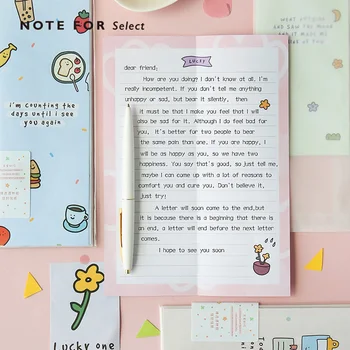 NOTE FOR Select
LUCKY
dear friend:
How are you doing? I don't know at all. I'm
really incompetent. If you don't tell me anything
unhappy or sad, but bear it silently, then
it must be that I make you feel that I will
also be sad for it. Although I do feel bad for
you, it's better for two people to bear
the same pain than one. If you are happy, I
will be as happy as you, so we have two
happiness. You say that's good, so just tell me,
maybe I can come up with a lot of reasons to
comfort you and cure you. Don't believe it,
just try!
A letter will soon come to the end, but
it is because there is a beginning that there is
an end, a letter will end before the next letter
comes.
I hope to see you soon
i'm counting the
days until i see
you again
Lucky one